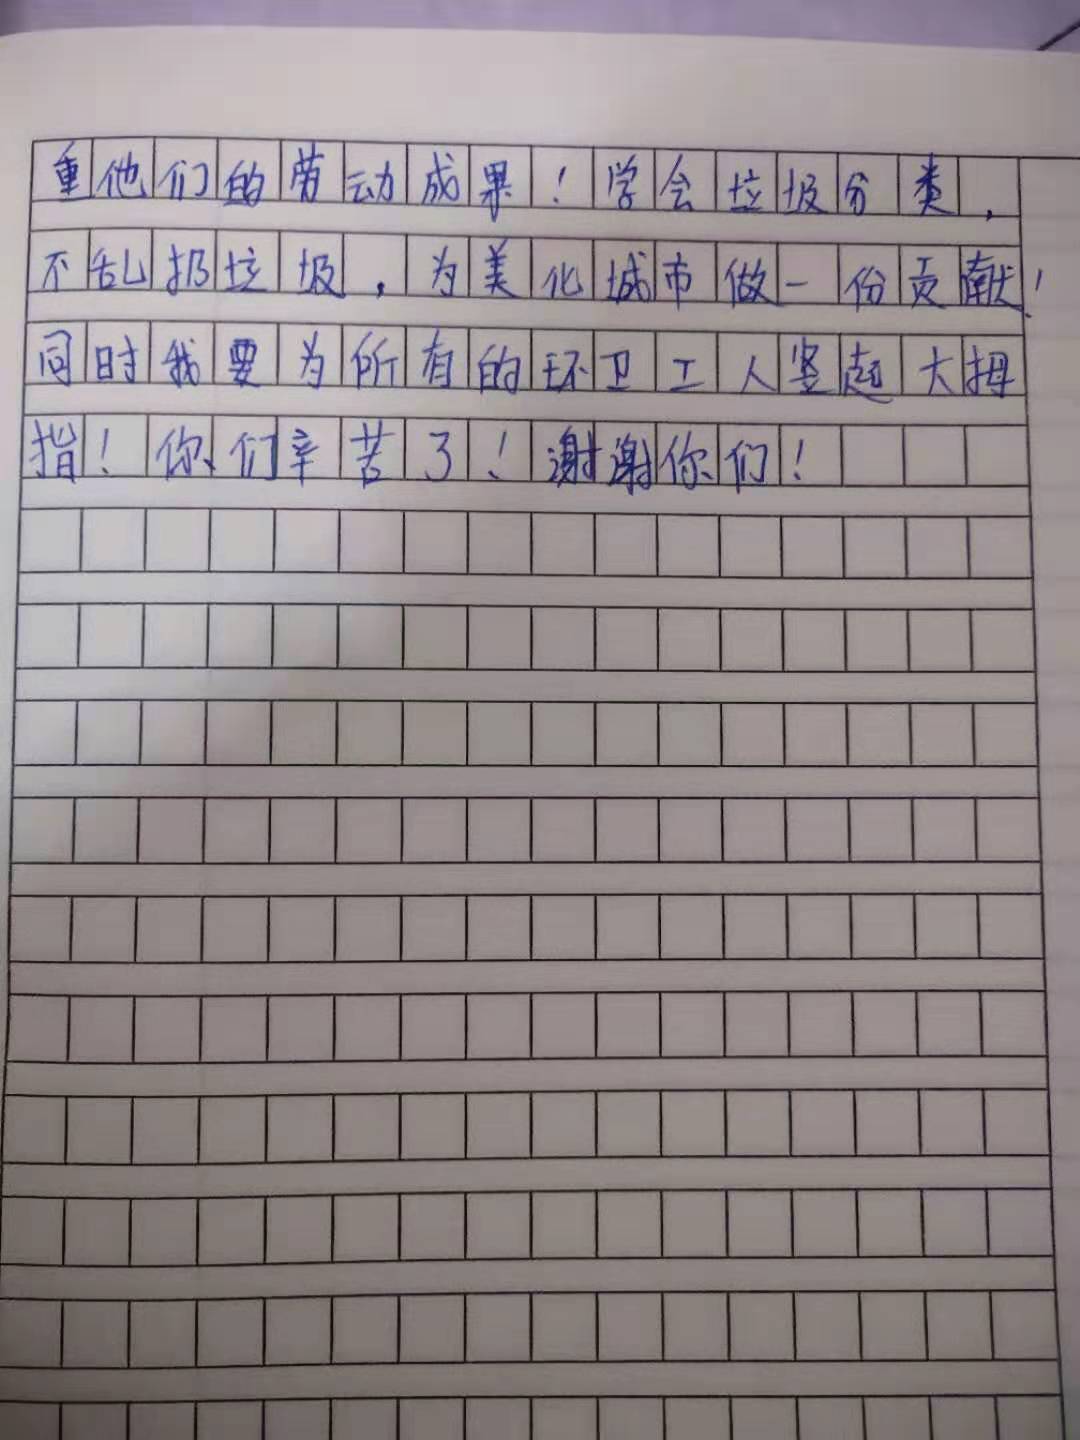 重他们的劳动成果！学会垃圾分类，
不乱扔垃圾，为美化城市做一份贡献！
同时我要为所有的环卫工人竖起大拇
指！你们辛苦了！谢谢你们！